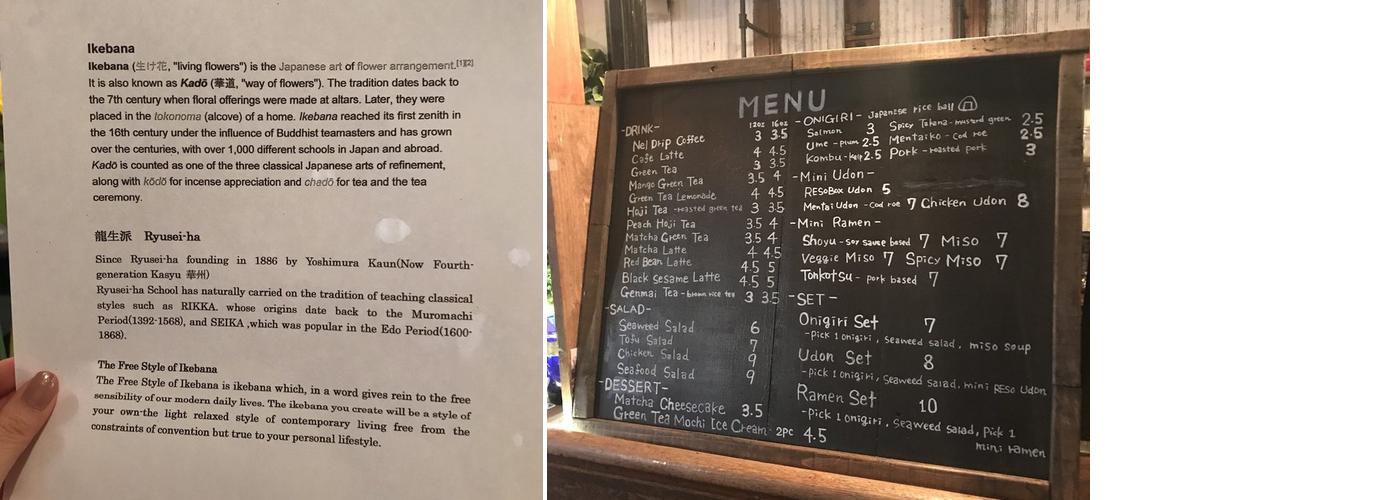 Ikebana
Ikebana (生け花, "living flowers") is the Japanese art of flower arrangement.[1][2]
It is also known as Kadō (華道, "way of flowers"). The tradition dates back to
the 7th century when floral offerings were made at altars. Later, they were
placed in the tokonoma (alcove) of a home. Ikebana reached its first zenith in
the 16th century under the influence of Buddhist teamasters and has grown
over the centuries, with over 1,000 different schools in Japan and abroad.
Kadō is counted as one of the three classical Japanese arts of refinement,
along with kōdō for incense appreciation and chadō for tea and the tea
ceremony.
龍生派 Ryusei-ha
Since Ryusei-ha founding in 1886 by Yoshimura Kaun(Now Fourth-
generation Kasyu 華州)
Ryusei-ha School has naturally carried on the tradition of teaching classical
styles such as RIKKA. whose origins date back to the Muromachi
Period(1392-1568), and SEIKA ,which was popular in the Edo Period(1600-
1868).
The Free Style of Ikebana
The Free Style of Ikebana is ikebana which, in a word gives rein to the free
sensibility of our modern daily lives. The ikebana you create will be a style of
your own-the light relaxed style of contemporary living free from the
constraints of convention but true to your personal lifestyle.
MENU
-DRINK- 12oz 16oz
Nel Drip Coffee 3 3.5
Cafe Latte 4 4.5
Green Tea 3 3.5
Mango Green Tea 3.5 4
Green Tea Lemonade 4 4.5
Hoji Tea -roasted green tea 3 3.5
Peach Hoji Tea 3.5 4
Matcha Green Tea 3.5 4
Matcha Latte 4 4.5
Red Bean Latte 4.5 5
Black sesame Latte 4.5 5
Genmai Tea -brown rice tea 3 3.5
-SALAD-
Seaweed Salad 6
Tofu Salad 7
Chicken Salad 9
Seafood Salad 9
-DESSERT-
Matcha Cheesecake 3.5
Green Tea Mochi Ice Cream 2pc 4.5
-ONIGIRI- Japanese rice ball
Salmon 3 Spicy Takana -mustard green 2.5
Ume -plum 2.5 Mentaiko -cod roe 2.5
Kombu -kelp 2.5 Pork -roasted pork 3
-Mini Udon-
RESOBOX Udon 5
Mentai Udon -cod roe 7 Chicken Udon 8
-Mini Ramen-
Shoyu -soy sauce based 7 Miso 7
Veggie Miso 7 Spicy Miso 7
Tonkotsu - pork based 7
-SET-
Onigiri Set 7
-pick 1 onigiri, seaweed salad, miso soup
Udon Set 8
-pick 1 onigiri, seaweed salad, mini RESO Udon
Ramen Set 10
-pick 1 onigiri, seaweed salad, pick 1
mini ramen